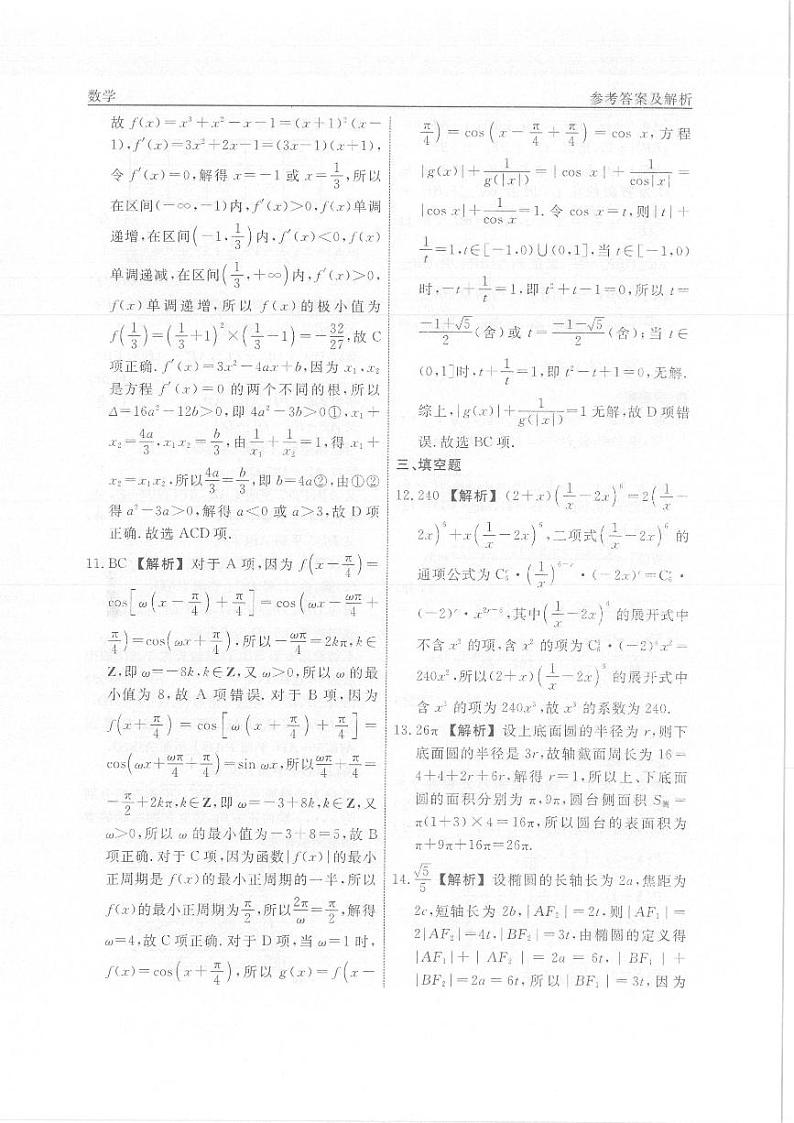 数学
参考答案及解析
故 f(x)=x³+x²-x-1=(x+1)²(x-
1),f′(x)=3x²+2x-1=(3x-1)(x+1),
令 f′(x)=0,解得 x=-1 或 x=1/3,所以
在区间(-∞,-1)内,f′(x)>0,f(x)单调
递增,在区间(-1,1/3)内,f′(x)<0,f(x)
单调递减,在区间(1/3,+∞)内,f′(x)>0,
f(x)单调递增,所以 f(x)的极小值为
f(1/3)=(1/3+1)²×(1/3-1)=-32/27,故 C
项正确.f′(x)=3x²-4ax+b,因为 x₁,x₂
是方程 f′(x)=0 的两个不同的根,所以
Δ=16a²-12b>0,即 4a²-3b>0①,x₁+
x₂=4a/3,x₁x₂=b/3,由1/x₁+1/x₂=1,得 x₁+
x₂=x₁x₂,所以4a/3=b/3,即 b=4a②,由①②
得 a²-3a>0,解得 a<0 或 a>3,故 D 项
正确.故选 ACD项.
11.BC 【解析】对于 A 项,因为 f(x-π/4)=
cos[ω(x-π/4)+π/4]=cos(ωx-ωπ/4+
π/4)=cos(ωx+π/4),所以-ωπ/4=2kπ,k∈
Z,即 ω=-8k,k∈Z,又 ω>0,所以 ω 的最
小值为 8,故 A 项错误.对于 B 项,因为
f(x+π/4)=cos[ω(x+π/4)+π/4]=
cos(ωx+ωπ/4+π/4)=sin ωx,所以ωπ/4+π/4=
-π/2+2kπ,k∈Z,即 ω=-3+8k,k∈Z,又
ω>0,所以 ω 的最小值为-3+8=5,故 B
项正确.对于 C 项,因为函数|f(x)|的最小
正周期是 f(x)的最小正周期的一半,所以
f(x)的最小正周期为π/2,所以2π/ω=π/2,解得
ω=4,故 C 项正确.对于 D 项,当 ω=1 时,
f(x)=cos(x+π/4),所以 g(x)=f(x-
π/4)=cos(x-π/4+π/4)=cos x,方程
|g(x)|+1/g(|x|)=|cos x|+1/cos|x|=
|cos x|+1/cos x=1.令 cos x=t,则|t|+
1/t=1,t∈[-1,0)∪(0,1],当 t∈[-1,0)
时,-t+1/t=1,即 t²+t-1=0,所以 t=
(-1+√5)/2(舍)或 t=(-1-√5)/2(舍);当 t∈
(0,1]时,t+1/t=1,即 t²-t+1=0,无解.
综上,|g(x)|+1/g(|x|)=1 无解,故 D 项错
误.故选 BC 项.
三、填空题
12.240 【解析】(2+x)(1/x-2x)⁶=2(1/x-
2x)⁶+x(1/x-2x)⁶,二项式(1/x-2x)⁶ 的
通项公式为 C₆ʳ·(1/x)⁶⁻ʳ·(-2x)ʳ=C₆ʳ·
(-2)ʳ·x²ʳ⁻⁶,其中(1/x-2x)⁶ 的展开式中
不含 x³ 的项,含 x² 的项为 C₆⁴·(-2)⁴x²=
240x²,所以(2+x)(1/x-2x)⁶ 的展开式中
含 x³ 的项为 240x³,故 x³ 的系数为 240.
13.26π 【解析】设上底面圆的半径为 r,则下
底面圆的半径是 3r,故轴截面周长为 16=
4+4+2r+6r,解得 r=1,所以上、下底面
圆的面积分别为 π,9π,圆台侧面积 S侧=
π(1+3)×4=16π,所以圆台的表面积为
π+9π+16π=26π.
14.√5/5 【解析】设椭圆的长轴长为 2a,焦距为
2c,短轴长为 2b,|AF₂|=2t,则|AF₁|=
2|AF₂|=4t,|BF₂|=3t,由椭圆的定义得
|AF₁|+|AF₂|=2a=6t,|BF₁|+
|BF₂|=2a=6t,所以|BF₁|=3t,因为